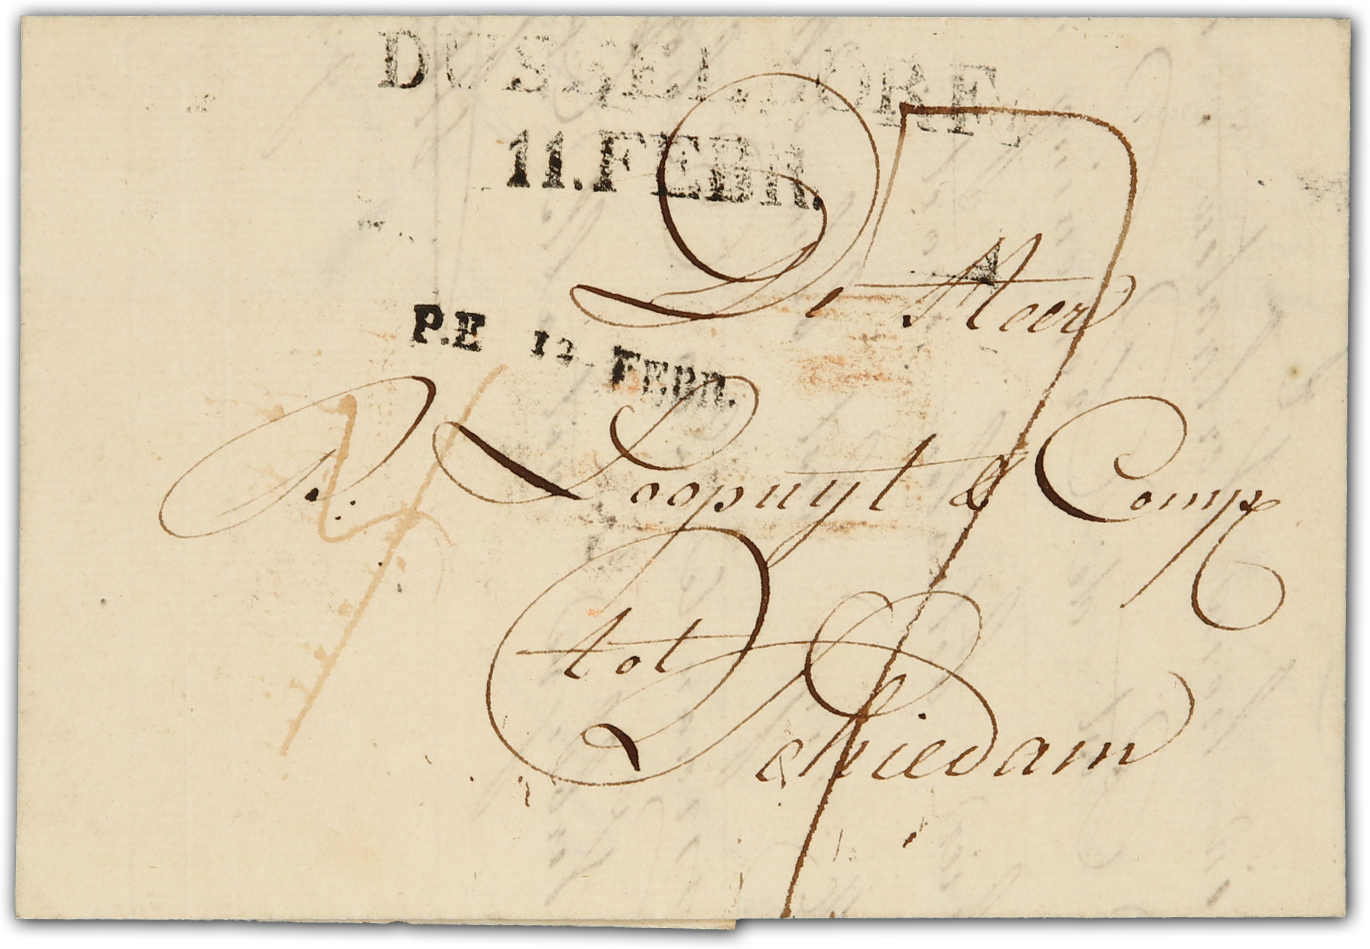 DUSSELDORF
11.FEBR.
De Heer
P.E 12 FEBR.
P. Loopuyt & Comp
tot
Schiedam